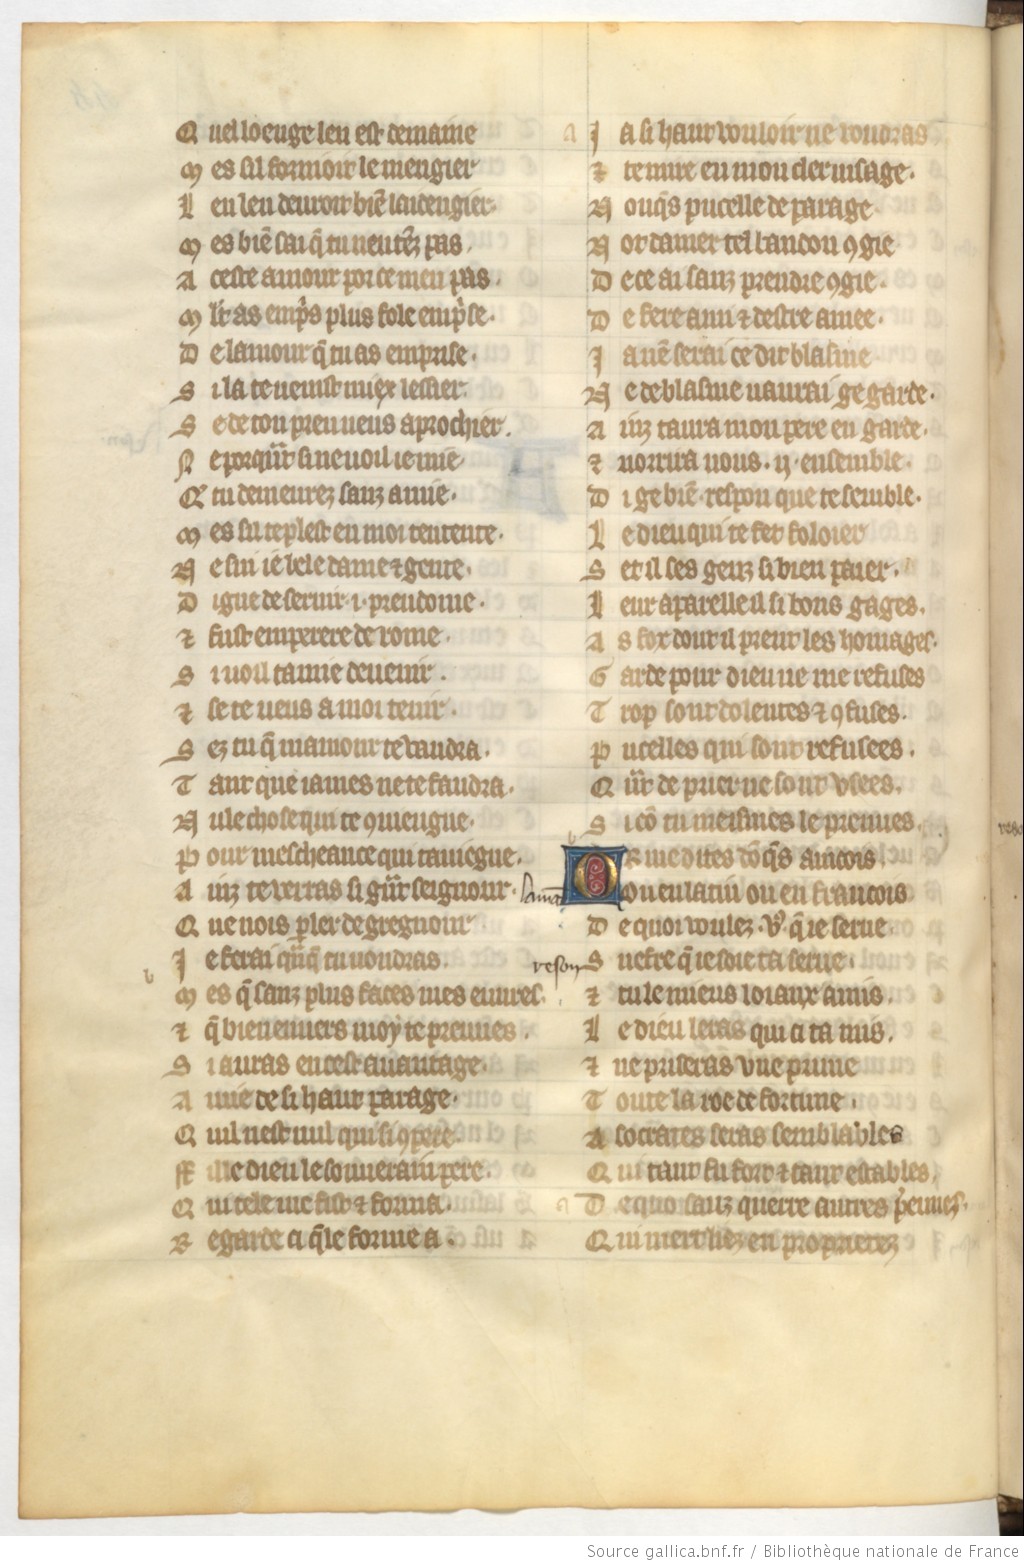 Q uel loeuge leu est demaine
M es sil formoit le mengier
L en leu deuroit biē laidengier.
M es biē sai q̄ tu neutēz pas.
A ceste amour por ce meu pas.
D e lamour q̄ tu as emprise.
S i la te uenist miex lessier.
S e de ton preu ueus aprochier.
N e porqu̅t si ne uoil ie mie
Q̄ tu demeurez sanz amie.
M es su te plest en moi tentente.
N e sui iē bele dame ⁊ gente.
D igne de seruir .i. preudome.
⁊ fust emperere de rome.
S i uoil tamie deuenir.
⁊ se te ueus a moi tenir.
S ez tu q̄ mamour te vaudra.
T ant que iames ne te faudra.
N ule chose qui te ꝯuiengne.
P our mescheance qui tauiēgne.
A inz te verras si gu̅t seignour.
Q ue nois ꝑler de gregnour
J e ferai qu̅q̄ tu uoudras.
M es q̄ sanz plus faces mes euures.
⁊ q̄ bien enuers moy te preuues.
S i auras en cest auantage.
A mie de si haut parage.
Q uil nest nul qui si ꝯpere.
ff ille dieu le souuerain pere.
Q ui tele me fist ⁊ forma.
R egarde ci q̄le forme a.
J a si haut vouloir ne voudras
⁊ te mire en mon cler uisage.
N onq̄s pucelle de parage
N ot damer tel bandon ꝯ gie
D e ce ai sanz prendre ꝯgie.
D e fere ami ⁊ destre amee.
J a nē serai ce dit blasme
N e de blasme naurai ge garde.
A inz taura mon pere en garde.
⁊ norrira nous .ij. ensemble.
D i ge biē. respon que te semble.
L e dieu qui te fet foloier
S et il ses genz si bien paier.
L eur aparelle il si bons gages.
A s fox dont il prent les homages.
G arde pour dieu ne me refuses
T rop sont dolentes ⁊ ꝯfuses.
P ucelles qui sont refusees.
Q u̅t de prier ne sont vsees.
S i cō tu meismes le preuues.
O R me dites dōq̄s ancois
Lamāt
N on en latin ou en francois
D e quoi voulez .v̄. q̄ ie serue.
reson S uefre q̄ ie soie ta serue.
⁊ tu le mieus loiaux amis.
L e dieu leras qui ci ta mis.
⁊ ne priseras vne prune
T oute la roe de fortune.
A socrates seras semblables
Q ui tant fu fort ⁊ tant estables.